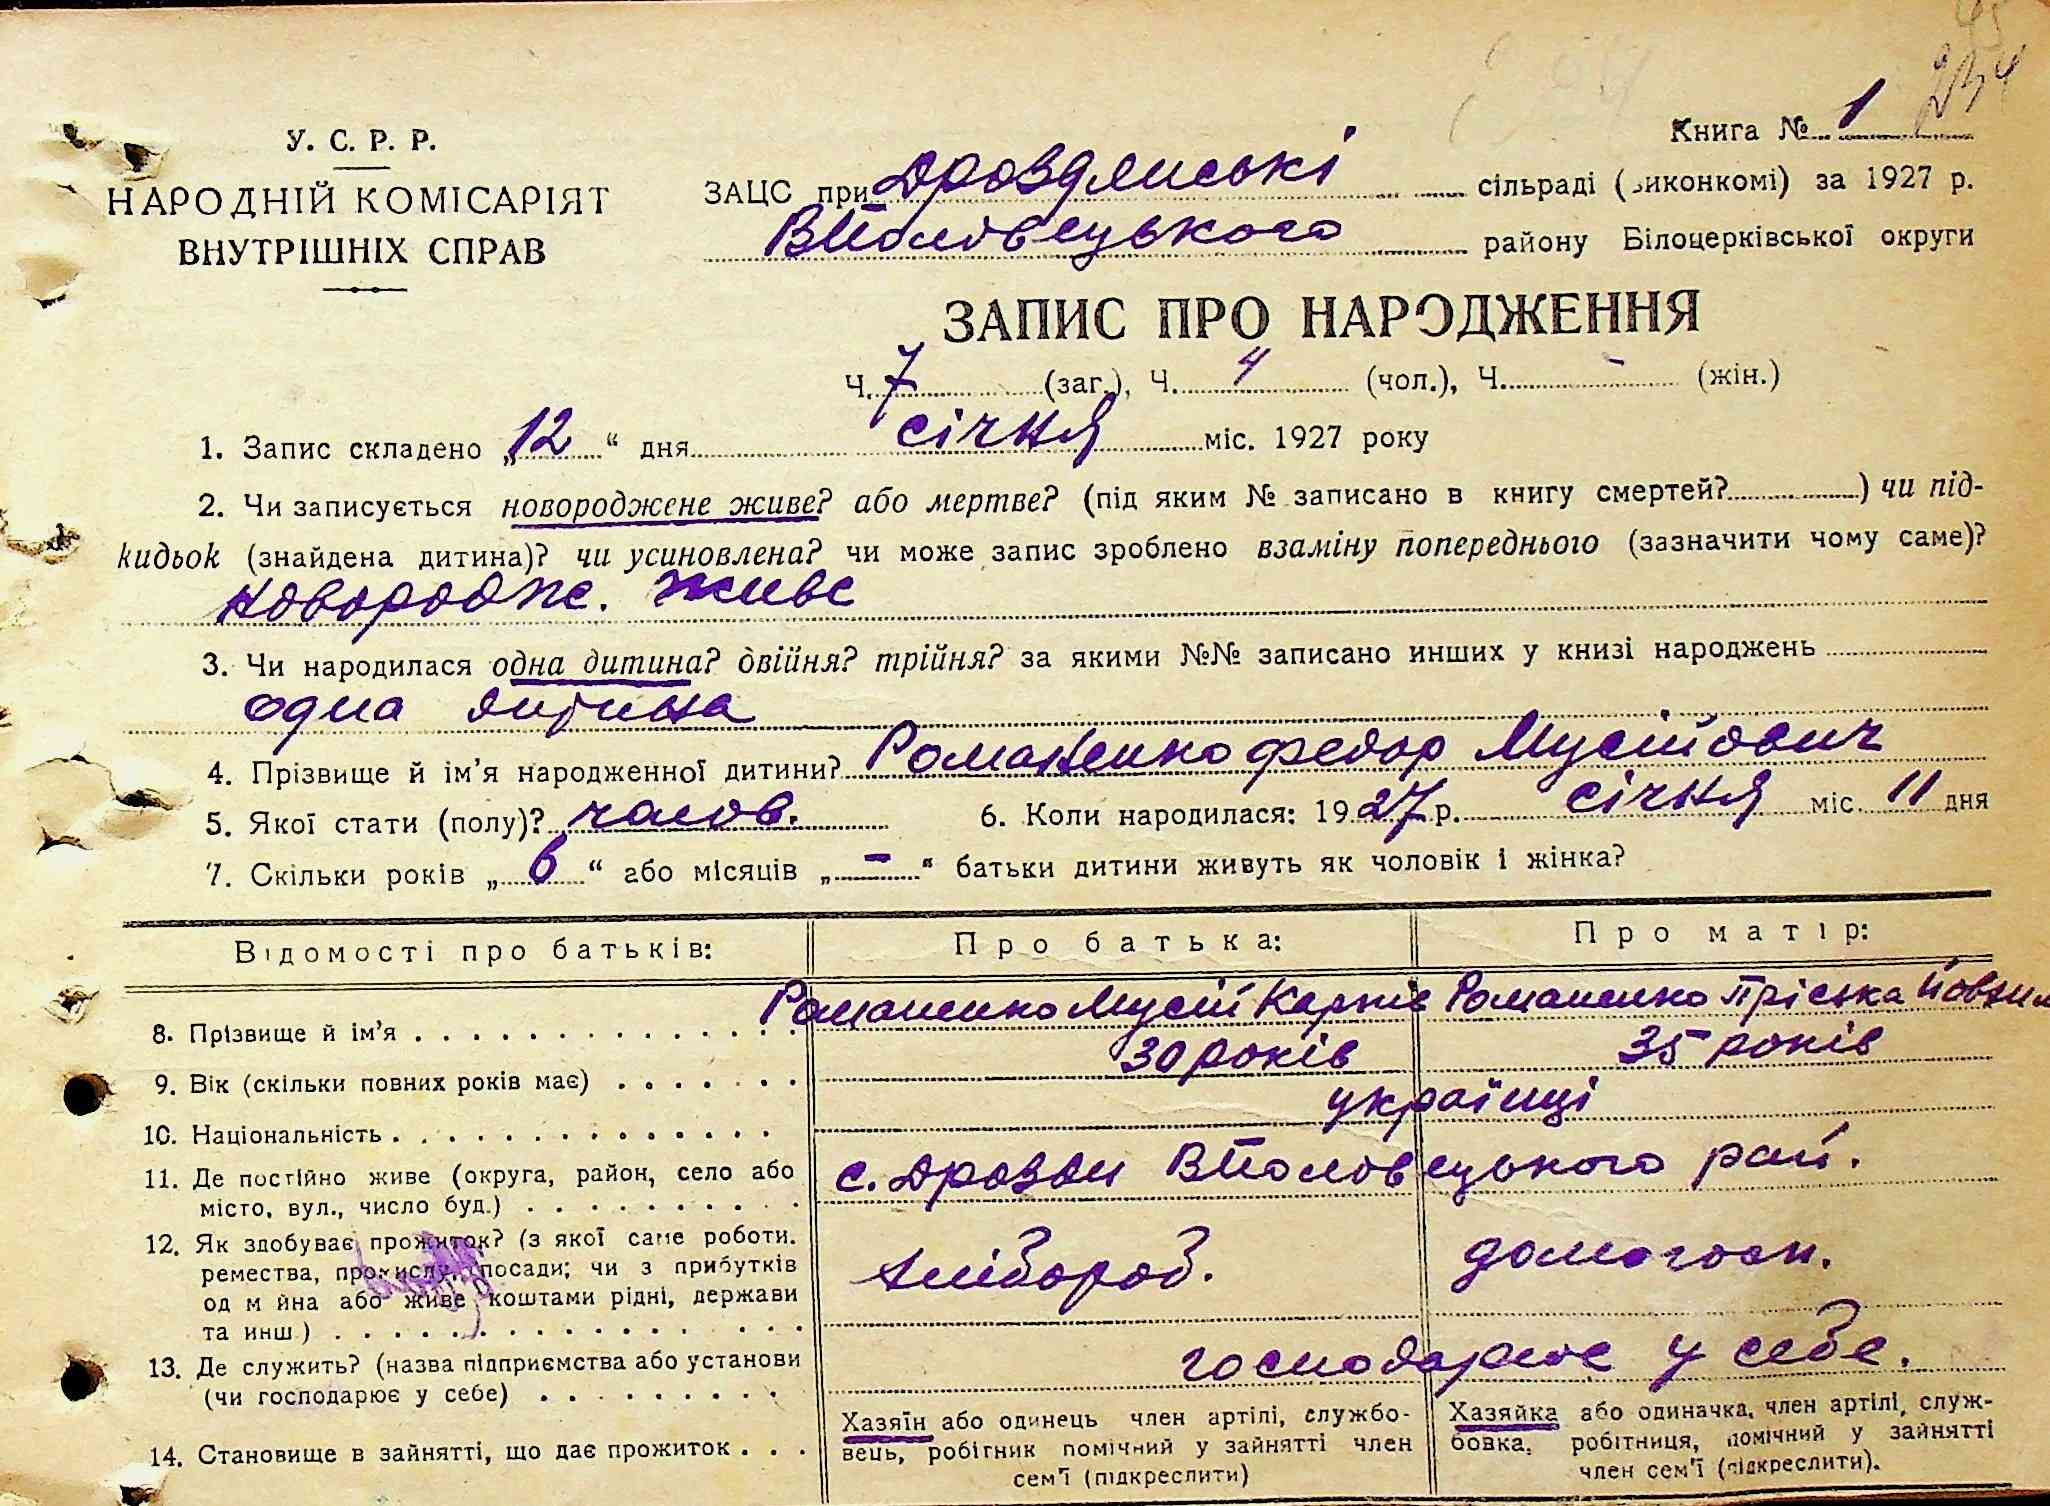 234
Книга № 1
У. С. Р. Р.
НАРОДНІЙ КОМІСАРІЯТ
ВНУТРІШНІХ СПРАВ
ЗАЦС при Дроздянські сільраді (виконкомі) за 1927 р.
ВПоловецького району Білоцерківської округи
ЗАПИС ПРО НАРОДЖЕННЯ
Ч. 7 (заг.), Ч. 4 (чол.), Ч. - (жін.)
1. Запис складено „12“ дня січня міс. 1927 року
2. Чи записується новороджене живе? або мертве? (під яким № записано в книгу смертей?) чи під-
кидьок (знайдена дитина)? чи усиновлена? чи може запис зроблено взаміну попереднього (зазначити чому саме)?
Новородже. живе
3. Чи народилася одна дитина? двійня? трійня? за якими №№ записано инших у книзі народжень
одна дитина
4. Прізвище й ім’я народженної дитини? Романенко Федор Мусійович
5. Якої стати (полу)? чолов. 6. Коли народилася: 1927 р. січня міс. 11 дня
7. Скільки років „6“ або місяців „-“ батьки дитини живуть як чоловік і жінка?
Відомості про батьків: Про батька: Про матір:
8. Прізвище й ім’я Романенко Мусій Романенко Пріська
9. Вік (скільки повних років має) 30 років 35 років
10. Національність українці
11. Де постійно живе (округа, район, село або
місто, вул., число буд.) с. Дрозди ВПоловецького рай.
12. Як здобуває прожиток? (з якої саме роботи.
ремества, промислу, посади; чи з прибутків
од майна або живе коштами рідні, держави
та инш.) хлібороб. домогосп.
13. Де служить? (назва підприємства або установи
(чи господарює у себе) господарює у себе.
14. Становище в зайнятті, що дає прожиток
Хазяїн або одинець член артілі, службо-
вець, робітник помічний у зайнятті член
сем’ї (підкреслити)
Хазяйка або одиначка, член артілі, служ-
бовка, робітниця, помічний у зайнятті
член сем’ї (підкреслити).